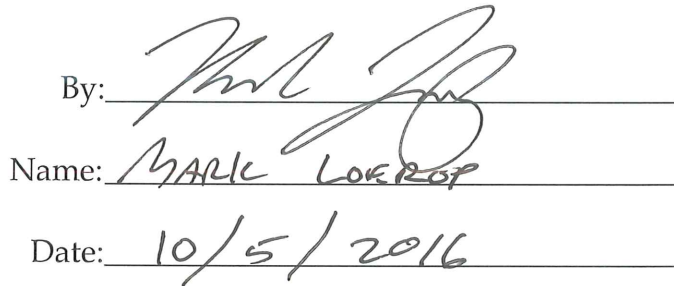 By:
Name: MARK LOEROP
Date: 10/5/2016